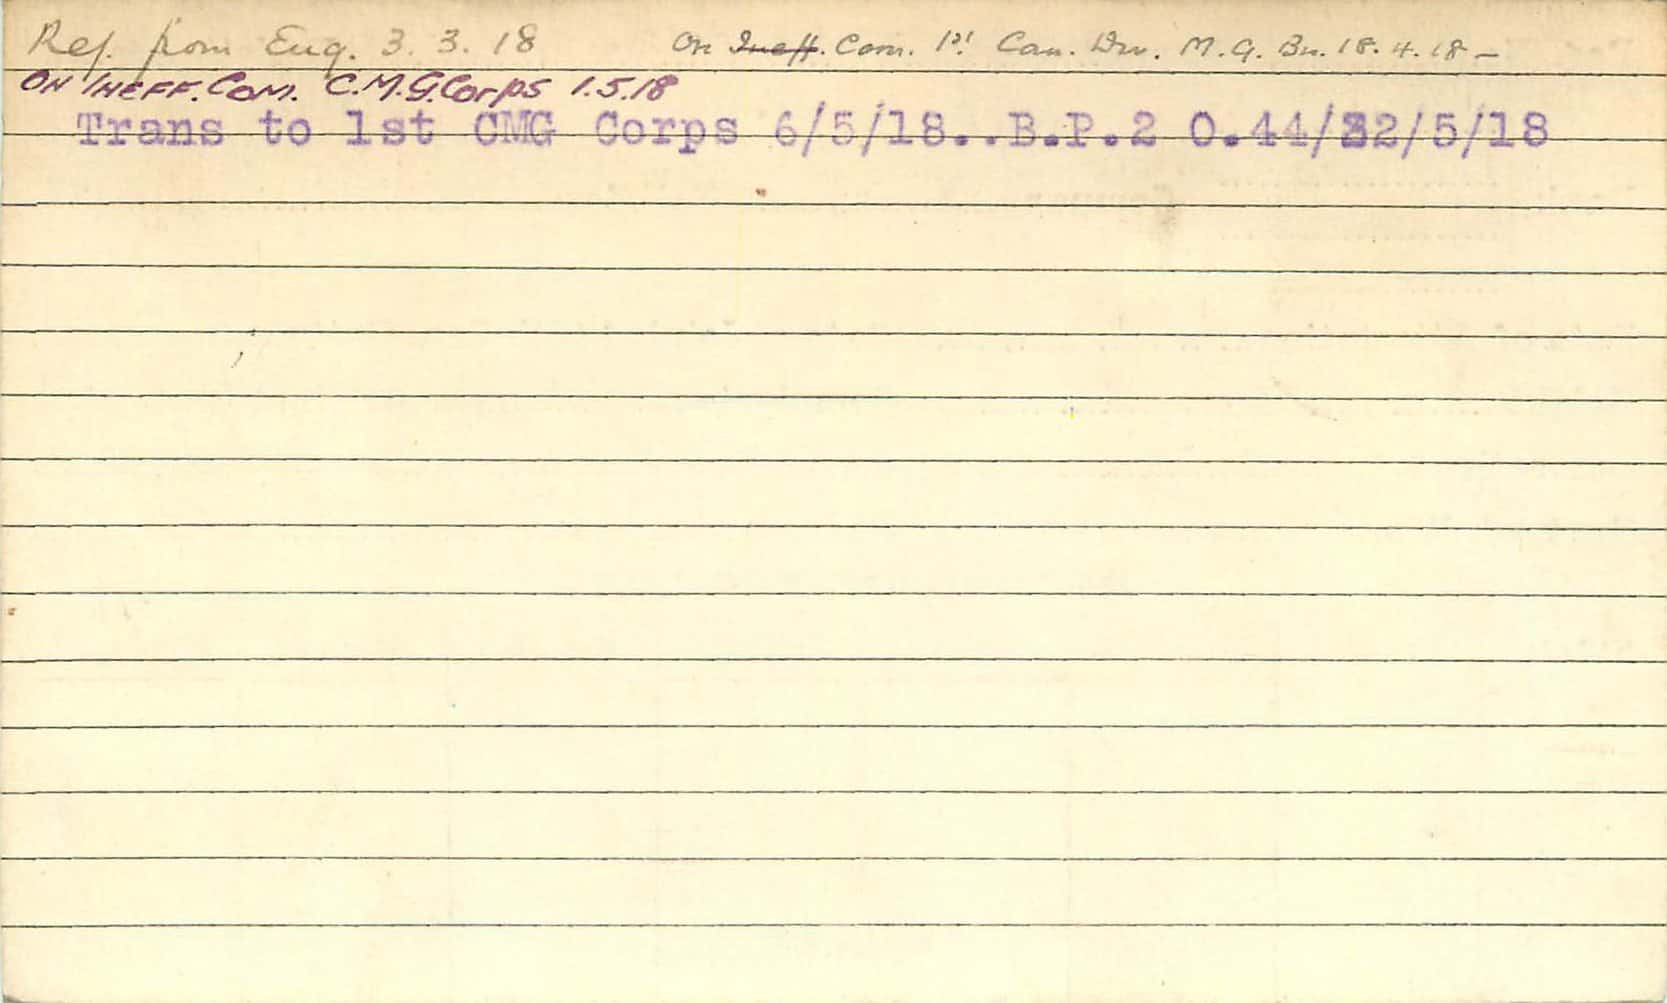 Rej. from Eng. 3.3.18 On Ineff. Com. 1st Can. Div. M.G. Bn. 18.4.18 –
ON INEFF. COM. C.M.G. Corps 1.5.18
Trans to 1st CMG Corps 6/5/18..B.P.2 O.44/22/5/18